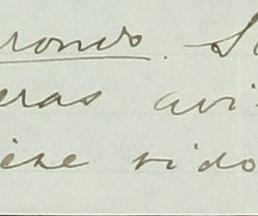 ronso. S
eras avi
iese sido